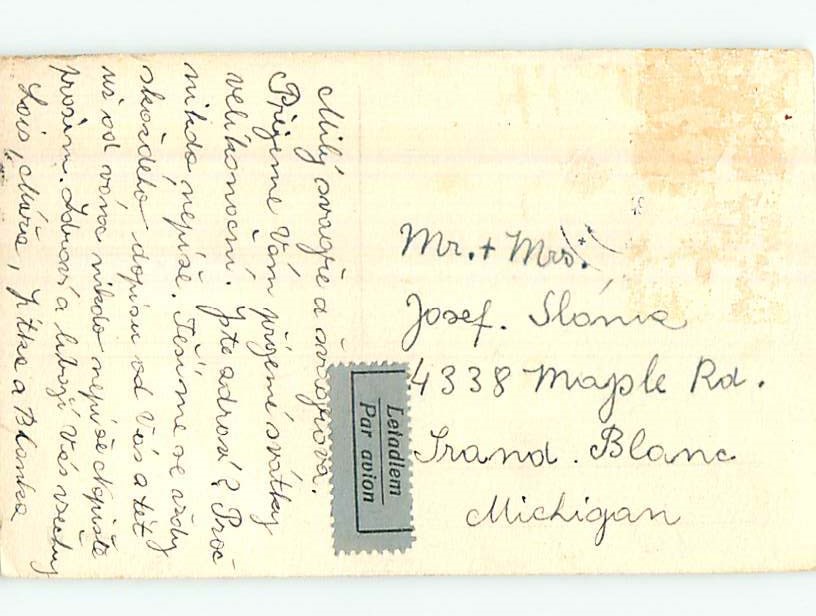 Milý svagře a švagrova.
Přijeme Vám příjemé svátky
velikonoční. Jste zdrosí? Proč
nikdo nepíše. Těšíme se vždy
skořdeho dopisu od Vás a teť
už od vóna nikdo nepíše
prosím. Zdraví a líbají Vás všechny
Lois, Mářa, Jitka a Blanka
Letadlem
Par avion
Mr. + Mrs.
Josef. Slánia
4338 Maple Rd.
Grand. Blanc
Michigan